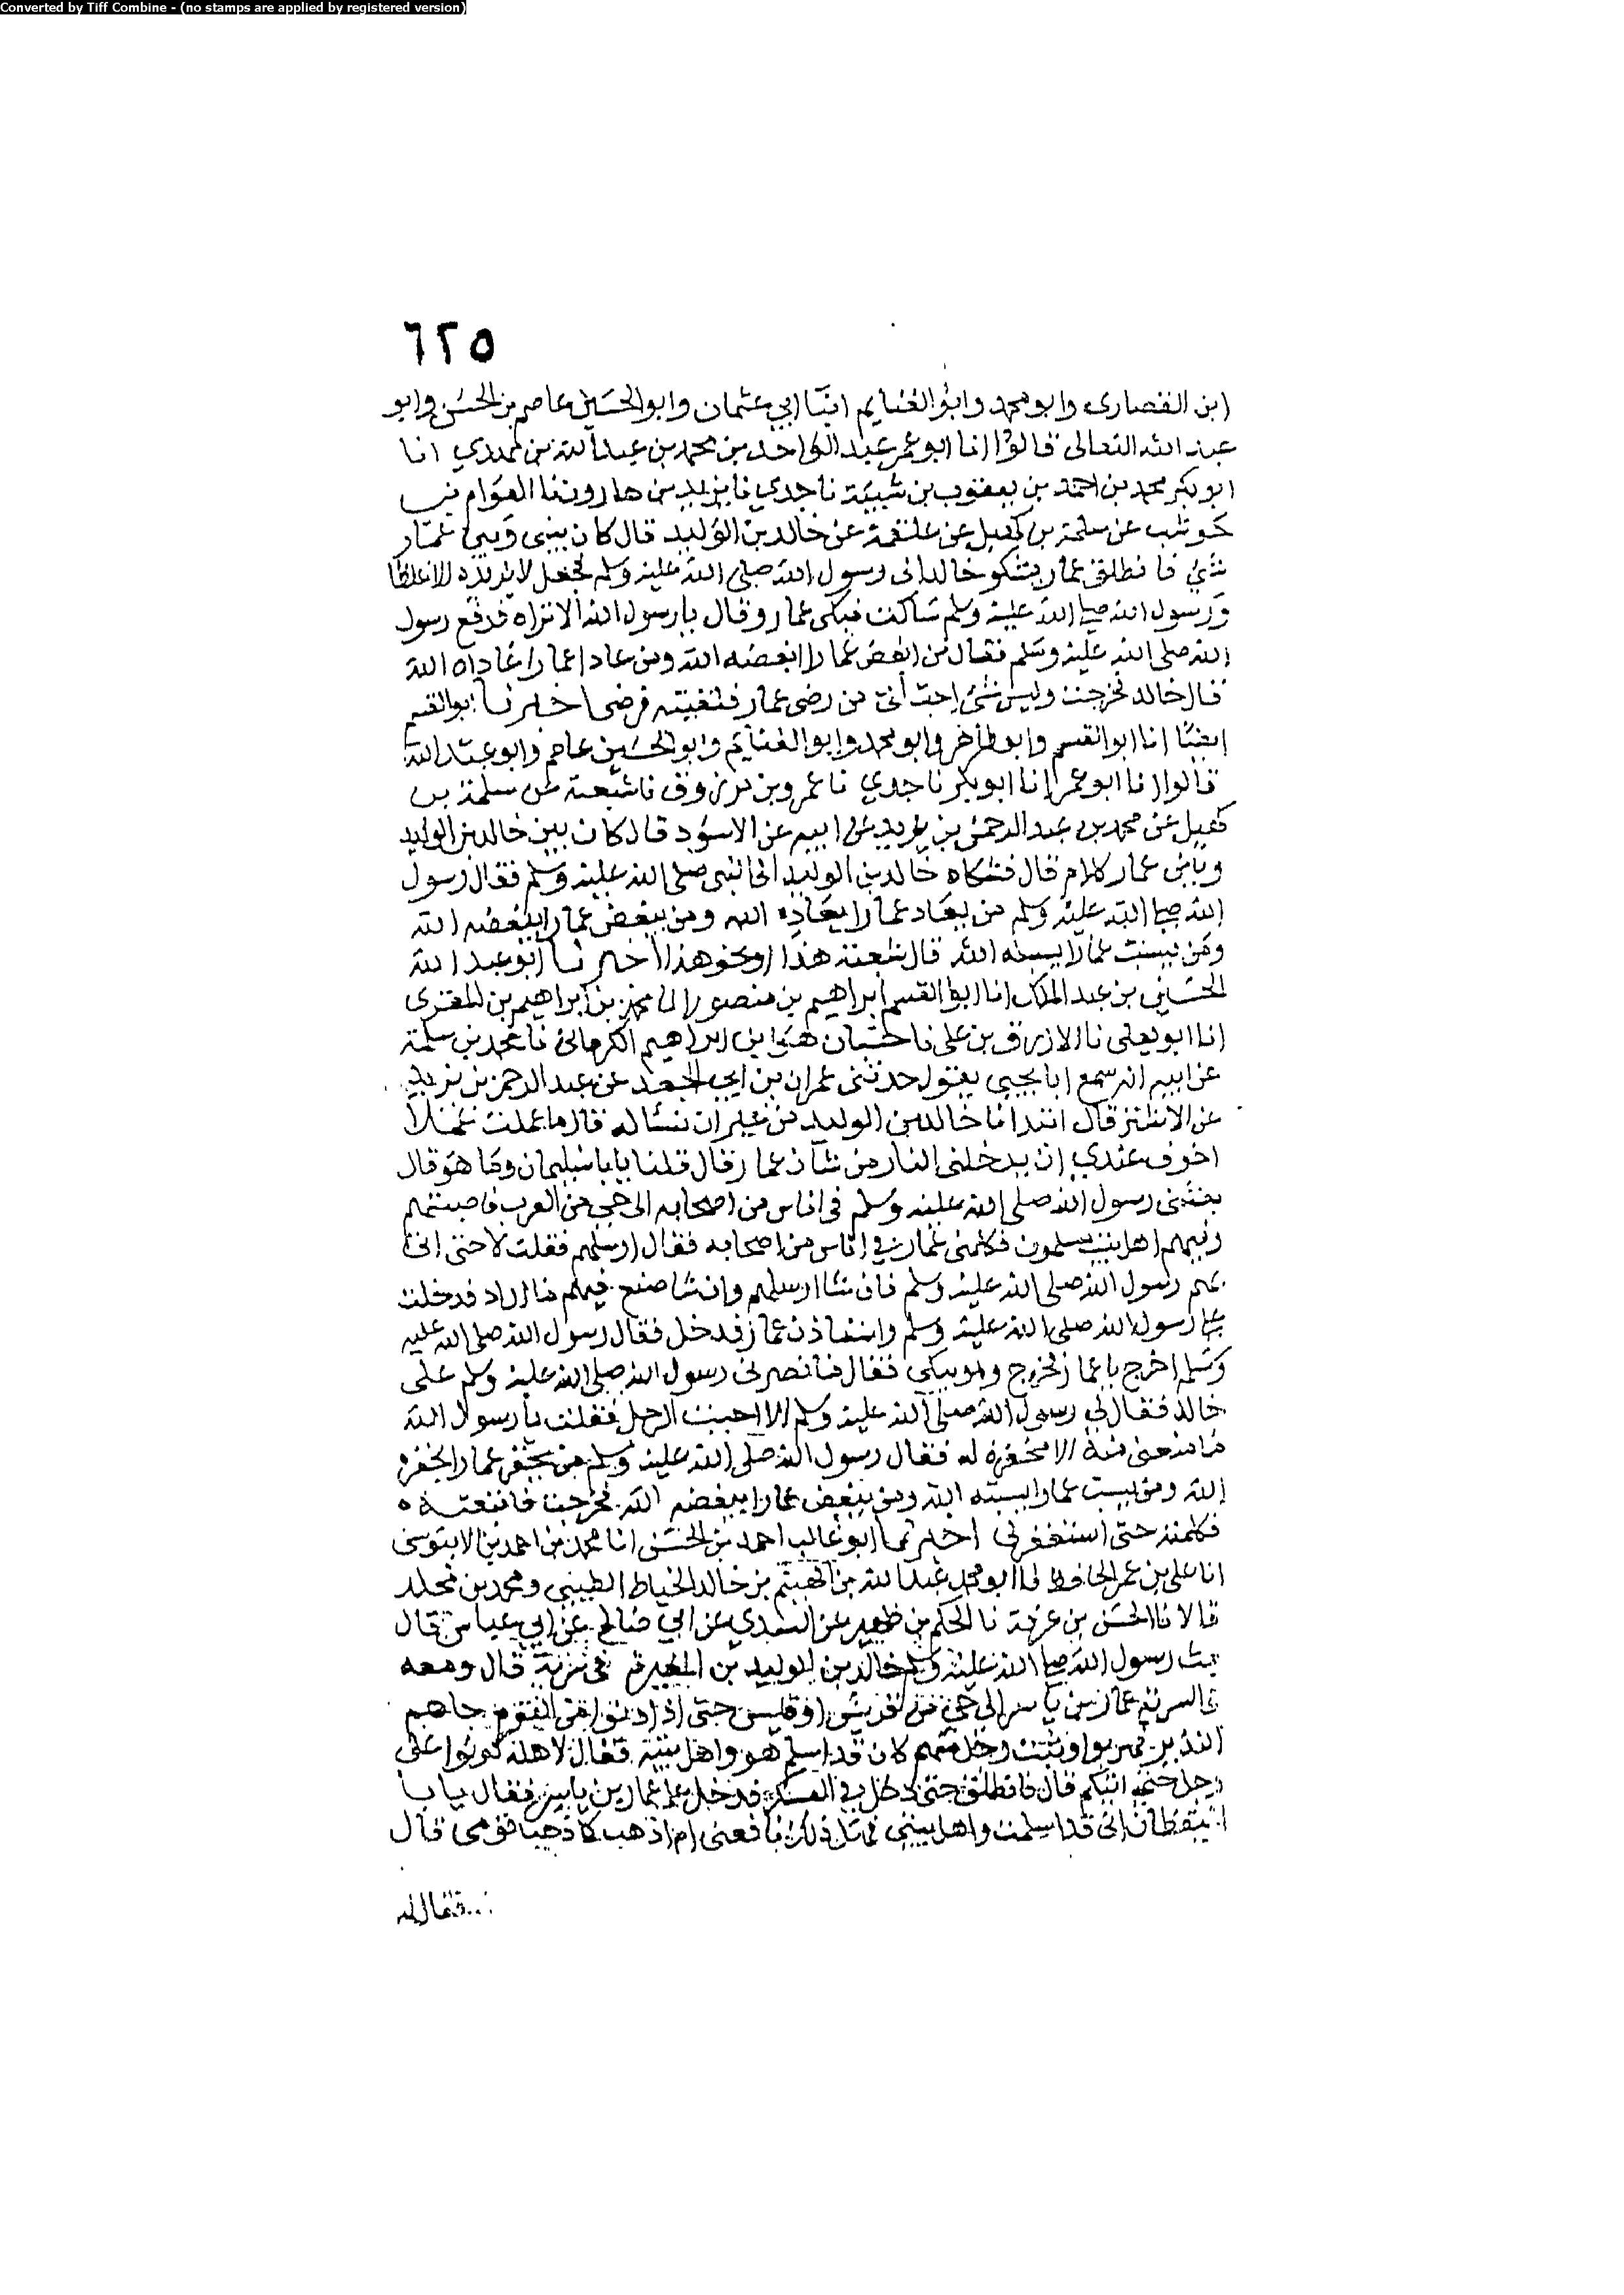 Converted by Tiff Combine - (no stamps are applied by registered version)
٦٢٥
ابن القصارى وابو محمد وابو الغنايم ابنا ابي عثمان وابو الحسين عاصم بن الحسن وابو
عبد الله النعالى قالوا انا ابو عمر عبد الواحد بن محمد بن عبد الله بن مهدي انا
ابو بكر محمد بن احمد بن يعقوب بن شيبة نا جدي نا يزيد بن هارون نا العوام بن
حوشب عن سلمة بن كهيل عن علقمة عن خالد بن الوليد قال كان بيني وبين عمار
شئ فانطلق عمار يشكو خالدا الى رسول الله صلى الله عليه وسلم فجعل لا يزيده الا غلظا
ورسول الله صلى الله عليه وسلم ساكت فبكى عمار وقال يا رسول الله الا تراه فرفع رسول
الله صلى الله عليه وسلم فقال من ابغض عمارا ابغضه الله ومن عادا عمارا عاداه الله
قال خالد فخرجت وليس شئ احب الى من رضى عمار فلقيته فرضى اخبرنا ابو القسم
ايضا انا ابو القسم وابو طاهر وابو محمد وابو الغنايم وابو الحسين عاصم وابو عبد الله
قالوا انا ابو عمر انا ابو بكر نا جدي نا عمرو بن مرزوق نا شعبة عن سلمة بن
كهيل عن محمد بن عبد الرحمن بن يزيد عن ابيه عن الاسود قال كان بين خالد بن الوليد
وبين عمار كلام قال فشكاه خالد بن الوليد الى النبى صلى الله عليه وسلم فقال رسول
الله صلى الله عليه وسلم من يعاد عمارا يعاده الله ومن يبغض عمارا يبغضه الله
ومن يسب عمارا يسبه الله قال شعبة هذا او نحو هذا اخبرنا ابو عبد الله
الحسين بن عبد الملك انا ابو القسم ابراهيم بن منصور انا محمد بن ابراهيم بن المقرى
انا ابو يعلى نا الازرق بن على نا حسان هو ابن ابراهيم الكرمانى نا محمد بن سلمة
عن ابيه انه سمع ابا يحيى يقول حدثنى عمران بن ابي الجعد عن عبد الرحمن بن يزيد
عن الاشتر قال ابتدانا خالد بن الوليد من غير ان نساله قال ما عملت عملا
اخوف عندي ان يدخلنى النار من شان عمار قال قلنا يا با سليمان وما هو قال
بعثنى رسول الله صلى الله عليه وسلم فى اناس من اصحابه الى حى من العرب فاصبتهم
وفيهم اهل بيت مسلمون فكلمنى عمار في اناس من اصحابه فقال ارسلهم فقلت لا حتى اتى
بهم رسول الله صلى الله عليه وسلم فان شا ارسلهم وان شا صنع فيهم ما اراد فدخلت
على رسول الله صلى الله عليه وسلم واستاذن عمار فدخل فقال رسول الله صلى الله عليه
وسلم اخرج يا عمار فخرج وهو يبكى فقال ما نصرنى رسول الله صلى الله عليه وسلم على
خالد فقال لي رسول الله صلى الله عليه وسلم الا اجبت الرجل فقلت يا رسول الله
ما منعنى منه الا محقرة له فقال رسول الله صلى الله عليه وسلم من يحقر عمارا يحقره
الله ومن يسب عمارا يسبه الله ومن يبغض عمارا يبغضه الله فخرجت فاتبعته
فكلمته حتى استغفر لى اخبرنا ابو غالب احمد بن الحسن انا محمد بن احمد بن الابنوسى
انا على بن عمر الحافظ نا ابو محمد عبد الله بن الهيثم بن خالد الخياط الطينى ومحمد بن مخلد
قالا نا الحسن بن عرفة نا الحكم بن ظهير عن السدي عن ابي صالح عن ابن عباس قال
بعث رسول الله صلى الله عليه وسلم خالد بن الوليد بن المغيرة فى سرية قال ومعه
فى السرية عمار بن ياسر الى حى من قريش او قيس حتى اذا دنوا من القوم جاهم
النذير فهربوا وثبت رجل منهم كان قد اسلم هو واهل بيته فقال لاهله كونوا على
رجل حتى اتيكم قال فانطلق حتى دخل في العسكر فدخل على عمار بن ياسر فقال يا با
اليقظان انى قد اسلمت واهل بيتي فهل ذلك نافعنى ام اذهب كما ذهب قومى قال
فقال له